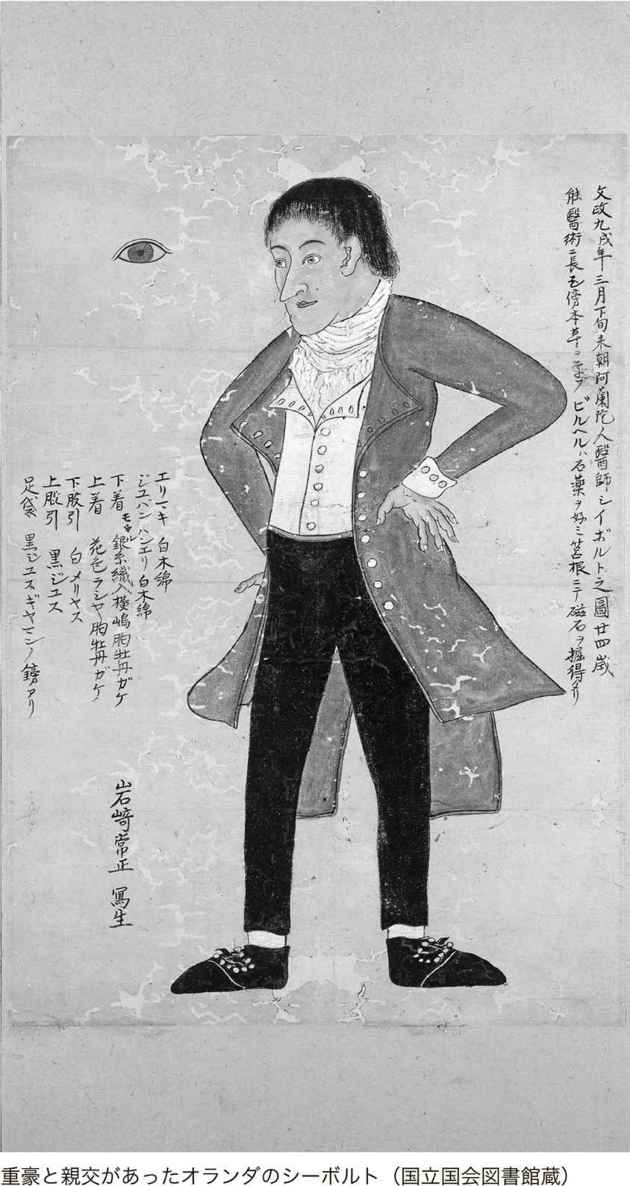 文政九戌年三月下旬来朝阿蘭陀人醫師シイボルト之圖廿四歳
能醫術ニ長モ傍本草ヲ ビルヘルハ石薬ヲ好ミ筥根ニテ磁石ヲ掘得タリ
エリマキ 白木綿
ジユハンハンエリ白木綿
下着 銀糸織入横嶋胸牡丹ガケ
上着 花色ラシヤ胸牡丹ガケ
下股引 白メリヤス
上股引 黒ジユス
足袋 黒ジユスギヤマンノ錺アリ
岩﨑常正 寫生
重豪と親交があったオランダのシーボルト（国立国会図書館蔵）